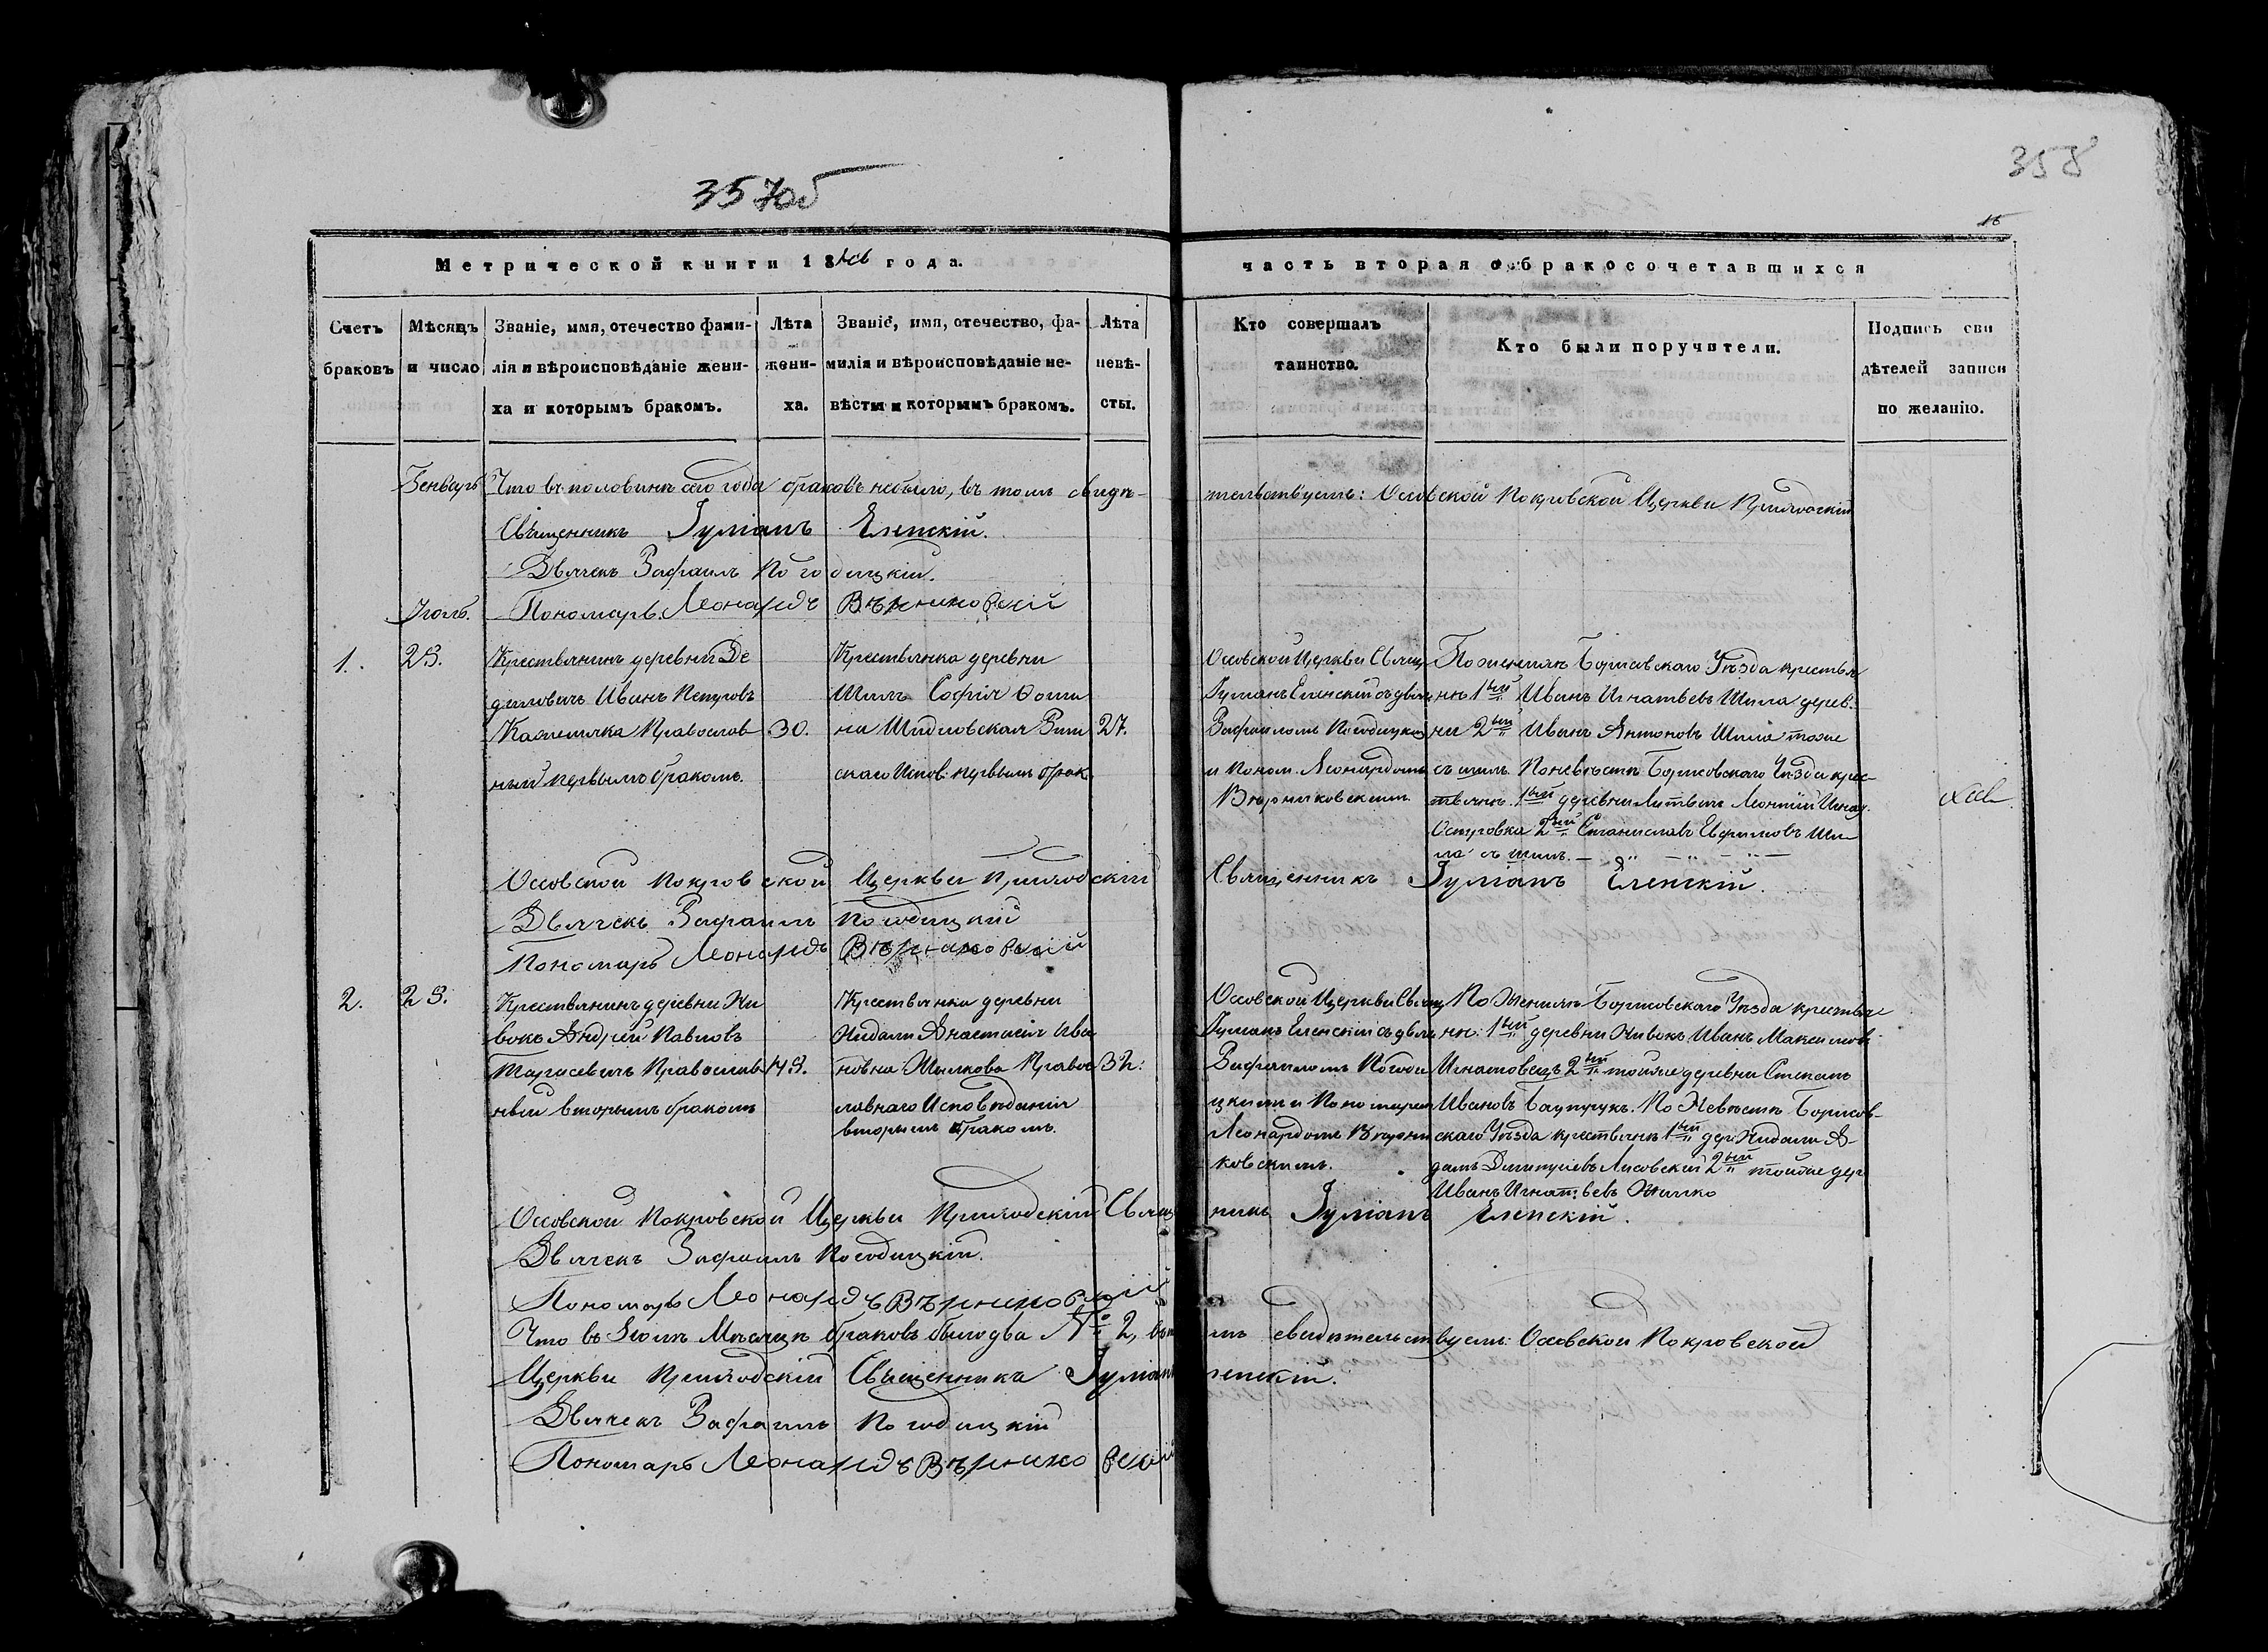 357об
358
16
Метрической книги 18 года.
часть вторая о бракосочетавшихся
Счетъ браковъ
Мѣсяцъ и число
Званіе, имя, отечество фами-
лія и вѣроисповѣданіе жени-
ха и которымъ бракомъ.
Лѣта жени- ха.
Званіе, имя, отечество, фа-
милія и вѣроисповѣданіе не-
вѣсты и которымъ бракомъ.
Лѣта невѣ- сты.
Кто совершалъ
таинство.
Кто были поручители.
Подпись сви
дѣтелей записи
по желанію.
Генварь Что въ половинѣ сего года браковъ небыло, въ томъ свидѣ-
тельствуемъ: Оссовской Покровской Церкви Приходскій
Священникъ Іуліанъ Еленскій.
Дьячекъ Рафаилъ Погодицкій.
Іюль. Пономарь Леонардъ Вѣрниковскій
1. 23.
Крестьянинъ деревни Де
диловичъ Иванъ Петровъ
Кажемяка Православ
ный первымъ бракомъ.
30.
Крестьянка деревни
Шилъ Софія Ѳоми
на Шидловская Рим
скаго Испов. первымъ брак.
27.
Оссовской Церкви Свящ
Іуліанъ Еленскій съ дьяч
Рафаиломъ Погодицким
и Поном. Леонардомъ
Вѣрниковскимъ.
По женихѣ Борисовскаго Уѣзда крестья
не 1ый Иванъ Игнатьевъ Шила дерев.
ни 2ый Иванъ Антоновъ Шила тоже
съ шилъ. По невѣстѣ Борисовскаго Уѣзда крес-
тьяне. 1ый деревни Литвичъ Леонтій Игнат.
Островка 2ый Станиславъ Ефимовъ Ши-
ла съ шилъ.
Оссовской Покровской Церкви Приходскій Священникъ Іуліанъ Еленскій.
Дьячекъ Рафаилъ Погодицкій
Пономарь Леонардъ Вѣрниковскій
2. 23.
Крестьянинъ деревни Ни
вокъ Андрей Павловъ
Тарасевичъ Православ
ный вторымъ бракомъ
43.
Крестьянка деревни
Нидали Анастасія Ива
новна Шылкова Правос
лавнаго Исповѣданія
вторымъ бракомъ.
32.
Оссовской Церкви Свящ
Іуліанъ Еленскій съ дьяч
Рафаиломъ Погоди
цкимъ и Пономарем
Леонардомъ Вѣрни
ковскимъ.
По Женихѣ Борисовскаго Уѣзда крестья
не: 1ый деревни Нивокъ Иванъ Максимов
Игнатовецъ 2ый тойже деревни Степанъ
Ивановъ Баутрукъ. По Невѣстѣ Борисов-
скаго Уѣзда крестьяне 1ый дер. Нидали А-
дамъ Дмитріевъ Лисовскій 2ый тойже дер
Иванъ Игнатьевъ Жилко
Оссовской Покровской Церкви Приходскій Священникъ Іуліанъ Еленскій.
Дьячекъ Рафаилъ Погодицкій.
Пономарь Леонардъ Вѣрниковскій
Что въ Іюлѣ Мѣсяцѣ браковъ было два № 2, въ томъ свидѣтельствуемъ: Оссовской Покровской
Церкви Приходскій Священникъ Іуліанъ Еленскій.
Дьячекъ Рафаилъ Погодицкій
Пономарь Леонардъ Вѣрниковскій